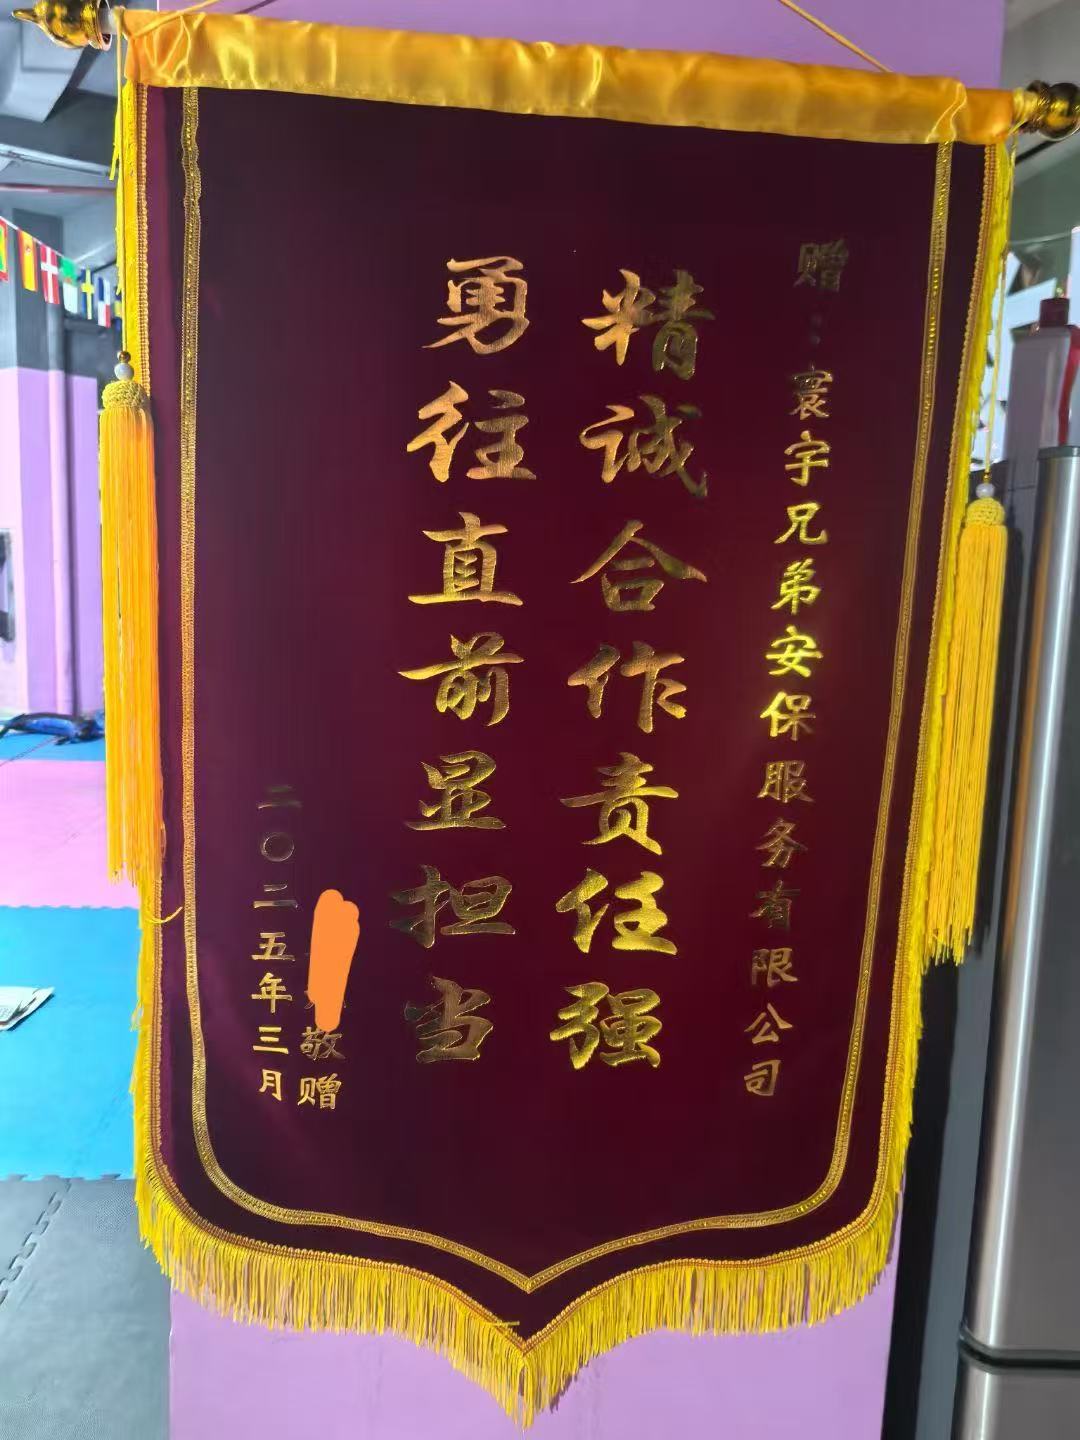 赠：寰宇兄弟安保服务有限公司
精诚合作责任强
勇往直前显担当
敬赠
二〇二五年三月